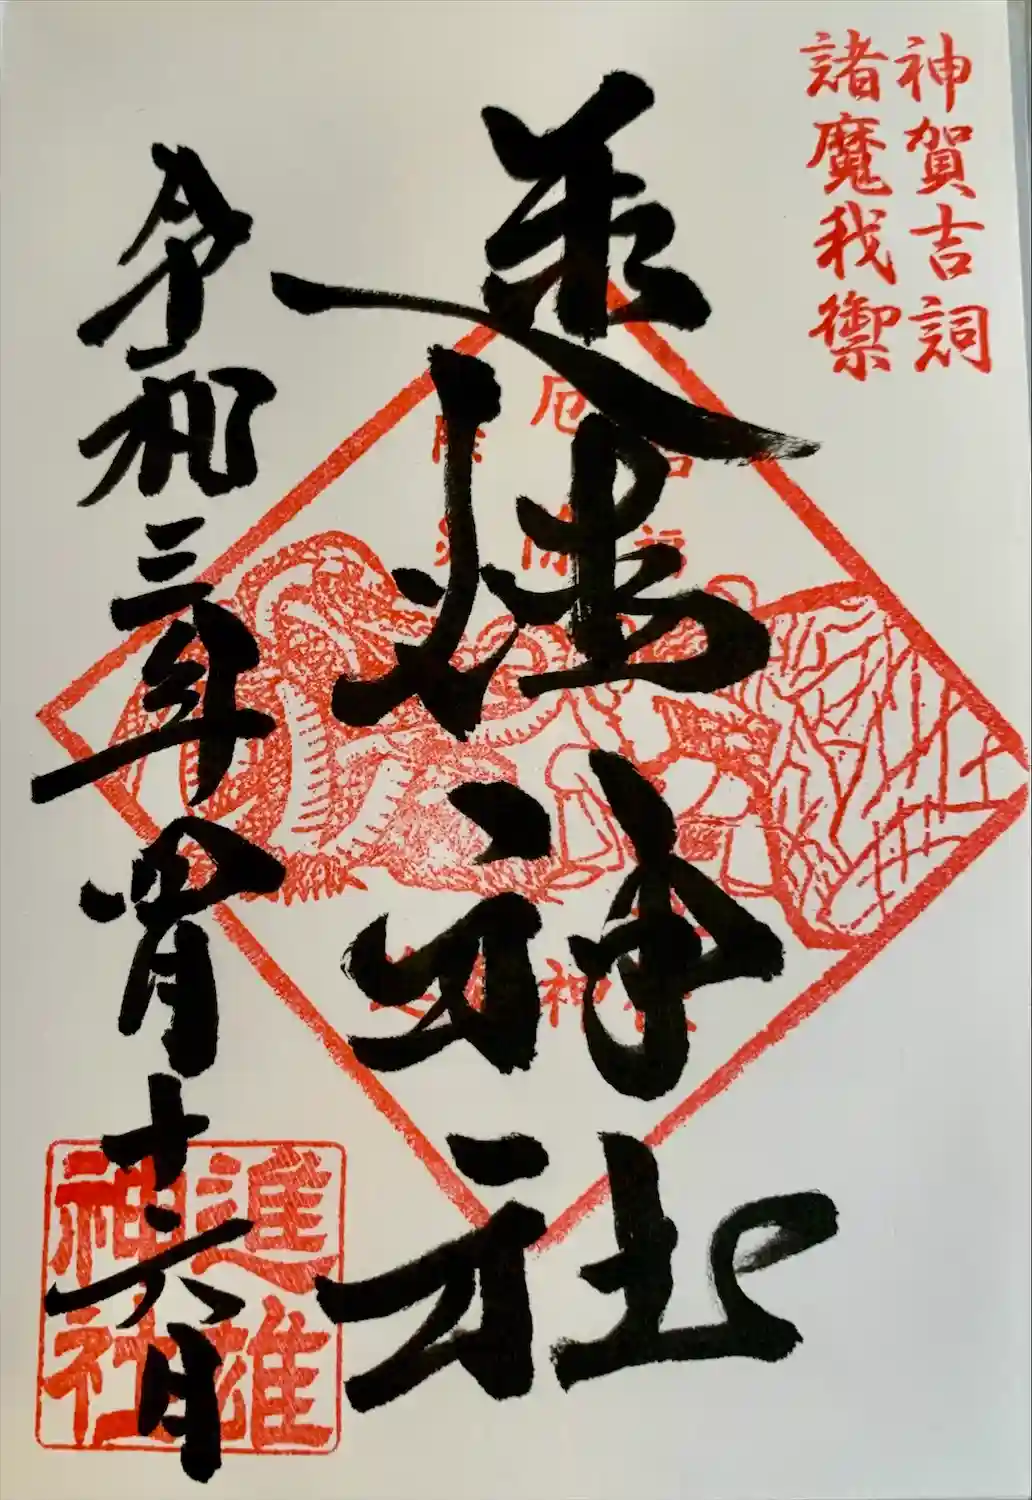 神賀吉詞
諸魔我禦
進雄神社
令和三年四月十六日
進雄
神社